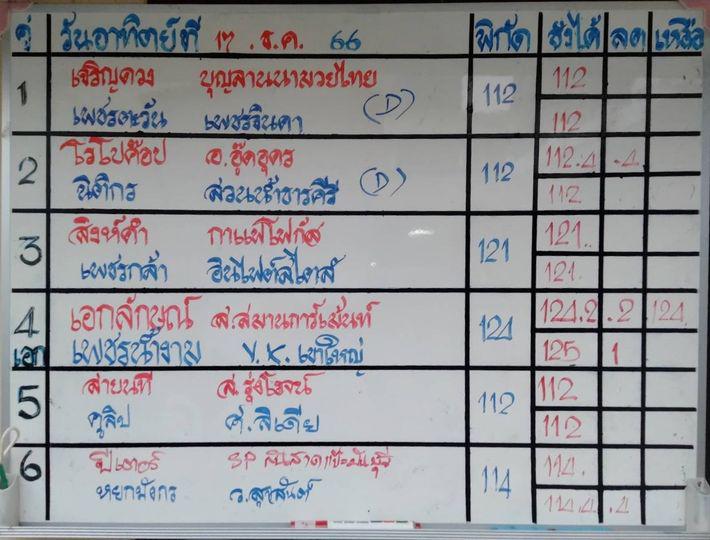 คู่ วันอาทิตย์ที่ 17 ธ.ค. 66 พิกัด ชั่งได้ ลด เหลือ
1 เจริญดวง บุญลานนามวยไทย 112 112
เพชรตะวัน เพชรจินดา (D) 112
2 โรโบค๊อป อ.อู๊ดอุดร 112 112.4 .4
นิติกร สวนน้ำธารคีรี (D) 112
3 สิงห์คำ กาแฟโฟกัส 121 121.
เพชรกล้า อินไฟต์สไตล์ 121.
4 เอกลักษณ์ ส.สมานการ์เม้นท์ 124 124.2 .2 124
เอก เพชรน้ำงาม V.K. เขาใหญ่ 125 1
5 สายนที ส.รุ่งโรจน์ 112 112
คูลิป ศ.ลิเดีย 112
6 ปีเตอร์ SP 114 114.
หยกมังกร ว.สุรสันต์ 114.4 .4